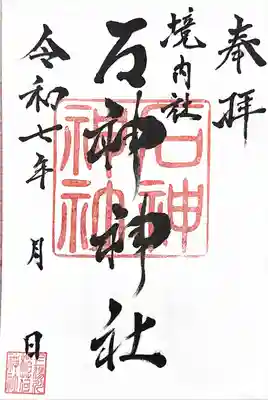 奉拝
境内社
石神神社
石神
神社
令和七年 月 日